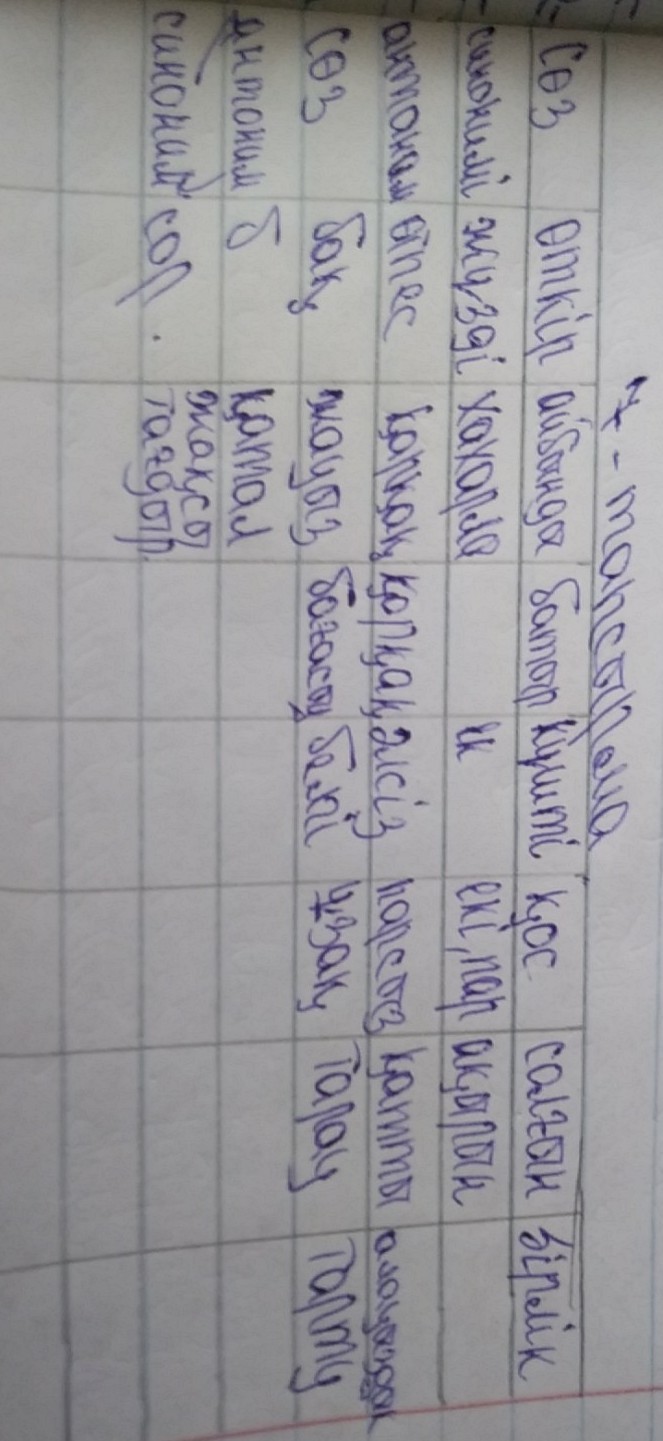 7 - тапсырма
Сөз өткір айбынды батыр күшті қос салғын бірлік
синонимі жүзді екі, пар ақырын
антоним өтпес қорқақ қорқақ әлсіз парсыз қатты
сөз бақ жауыз бағасы белгі ұзақ тарау тарту
антоним б қатал
синоним сор. жақсы тағдыр.